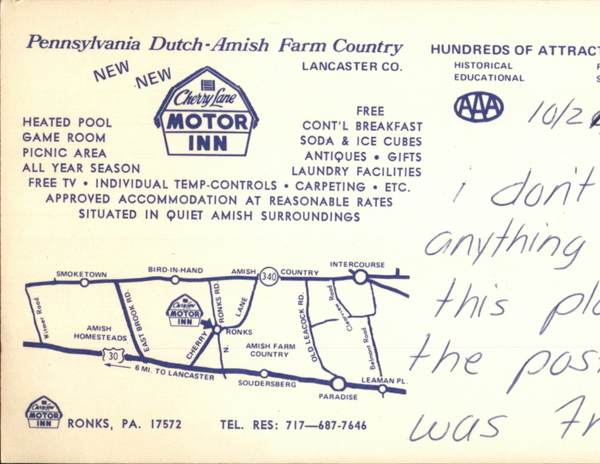 Pennsylvania Dutch-Amish Farm Country
HUNDREDS OF
LANCASTER CO.
HISTORICAL
EDUCATIONAL
NEW NEW
Cherry Lane
MOTOR
INN
AAA
HEATED POOL
GAME ROOM
PICNIC AREA
ALL YEAR SEASON
FREE
CONT'L BREAKFAST
SODA & ICE CUBES
ANTIQUES • GIFTS
LAUNDRY FACILITIES
FREE TV • INDIVIDUAL TEMP-CONTROLS • CARPETING • ETC.
APPROVED ACCOMMODATION AT REASONABLE RATES
SITUATED IN QUIET AMISH SURROUNDINGS
i don't
anything
this
the
was
SMOKETOWN
BIRD-IN-HAND
AMISH 340 COUNTRY
INTERCOURSE
Witmer Road
EAST BROOK RD.
RONKS RD.
LANE
CHERRY
N.
Cherry Lane
MOTOR
INN
RONKS
AMISH
HOMESTEADS
AMISH FARM
COUNTRY
OLD LEACOCK RD.
Road
Belmont Road
30
6 MI. TO LANCASTER
SOUDERSBERG
PARADISE
LEAMAN PL.
Cherry Lane
MOTOR
INN
RONKS, PA. 17572
TEL. RES: 717—687-7646